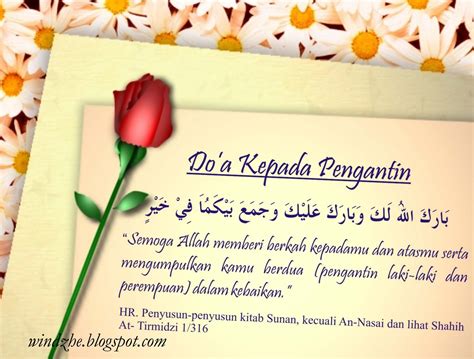 Do'a Kepada Pengantin
بَارَكَ اللهُ لَكَ وَبَارَكَ عَلَيْكَ وَجَمَعَ بَيْكَمُاَ فِيْ خَيْرٍ
“Semoga Allah memberi berkah kepadamu dan atasmu serta
mengumpulkan kamu berdua (pengantin laki-laki dan
perempuan) dalam kebaikan.”
HR. Penyusun-penyusun kitab Sunan, kecuali An-Nasai dan lihat Shahih
At- Tirmidzi 1/316
windzhe.blogspot.com